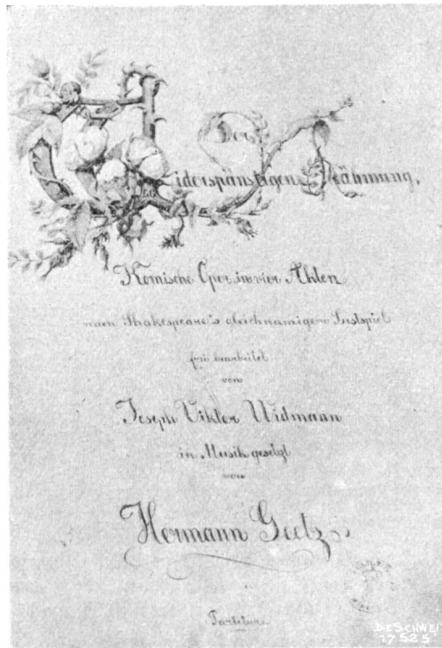 Der
Widerspänstigen Zähmung.
Komische Oper in vier Akten
nach Shakespeare's gleichnamigem Lustspiel
frei bearbeitet
von
Joseph Viktor Widmann
in Musik gesetzt
von
Hermann Goetz
Partitur.
DIE SCHWEIZ
17525